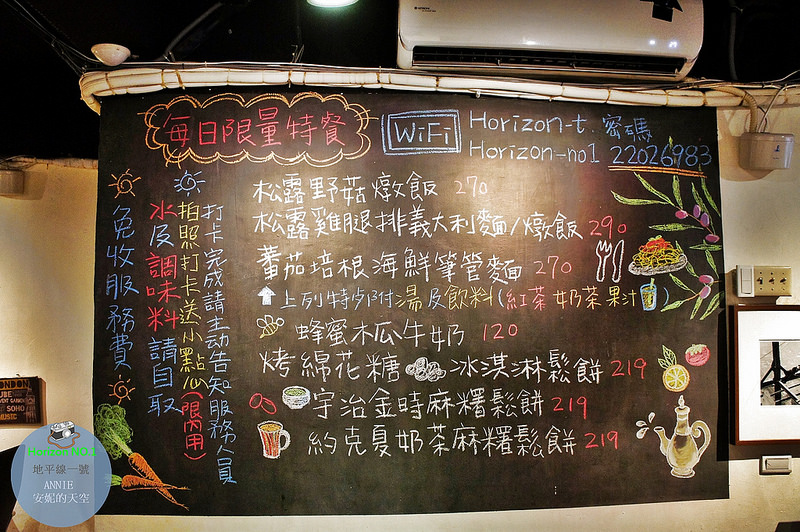 每日限量特餐
WiFi
Horizon-t. 密碼
Horizon-no1 22026983
松露野菇燉飯 270
松露雞腿排義大利麵/燉飯 290
蕃茄培根海鮮筆管麵 270
上列特餐附湯及飲料(紅茶 奶茶 果汁
蜂蜜木瓜牛奶 120
烤綿花糖 冰淇淋鬆餅 219
宇治金時麻糬鬆餅 219
約克夏奶茶麻糬鬆餅 219
打卡完成請主動告知服務人員
拍照打卡送小點心(限內用)
水及調味料請自取
免收服務費
LONDON
SOHO
MUSIC
Horizon NO.1
地平線一號
ANNIE
安妮的天空